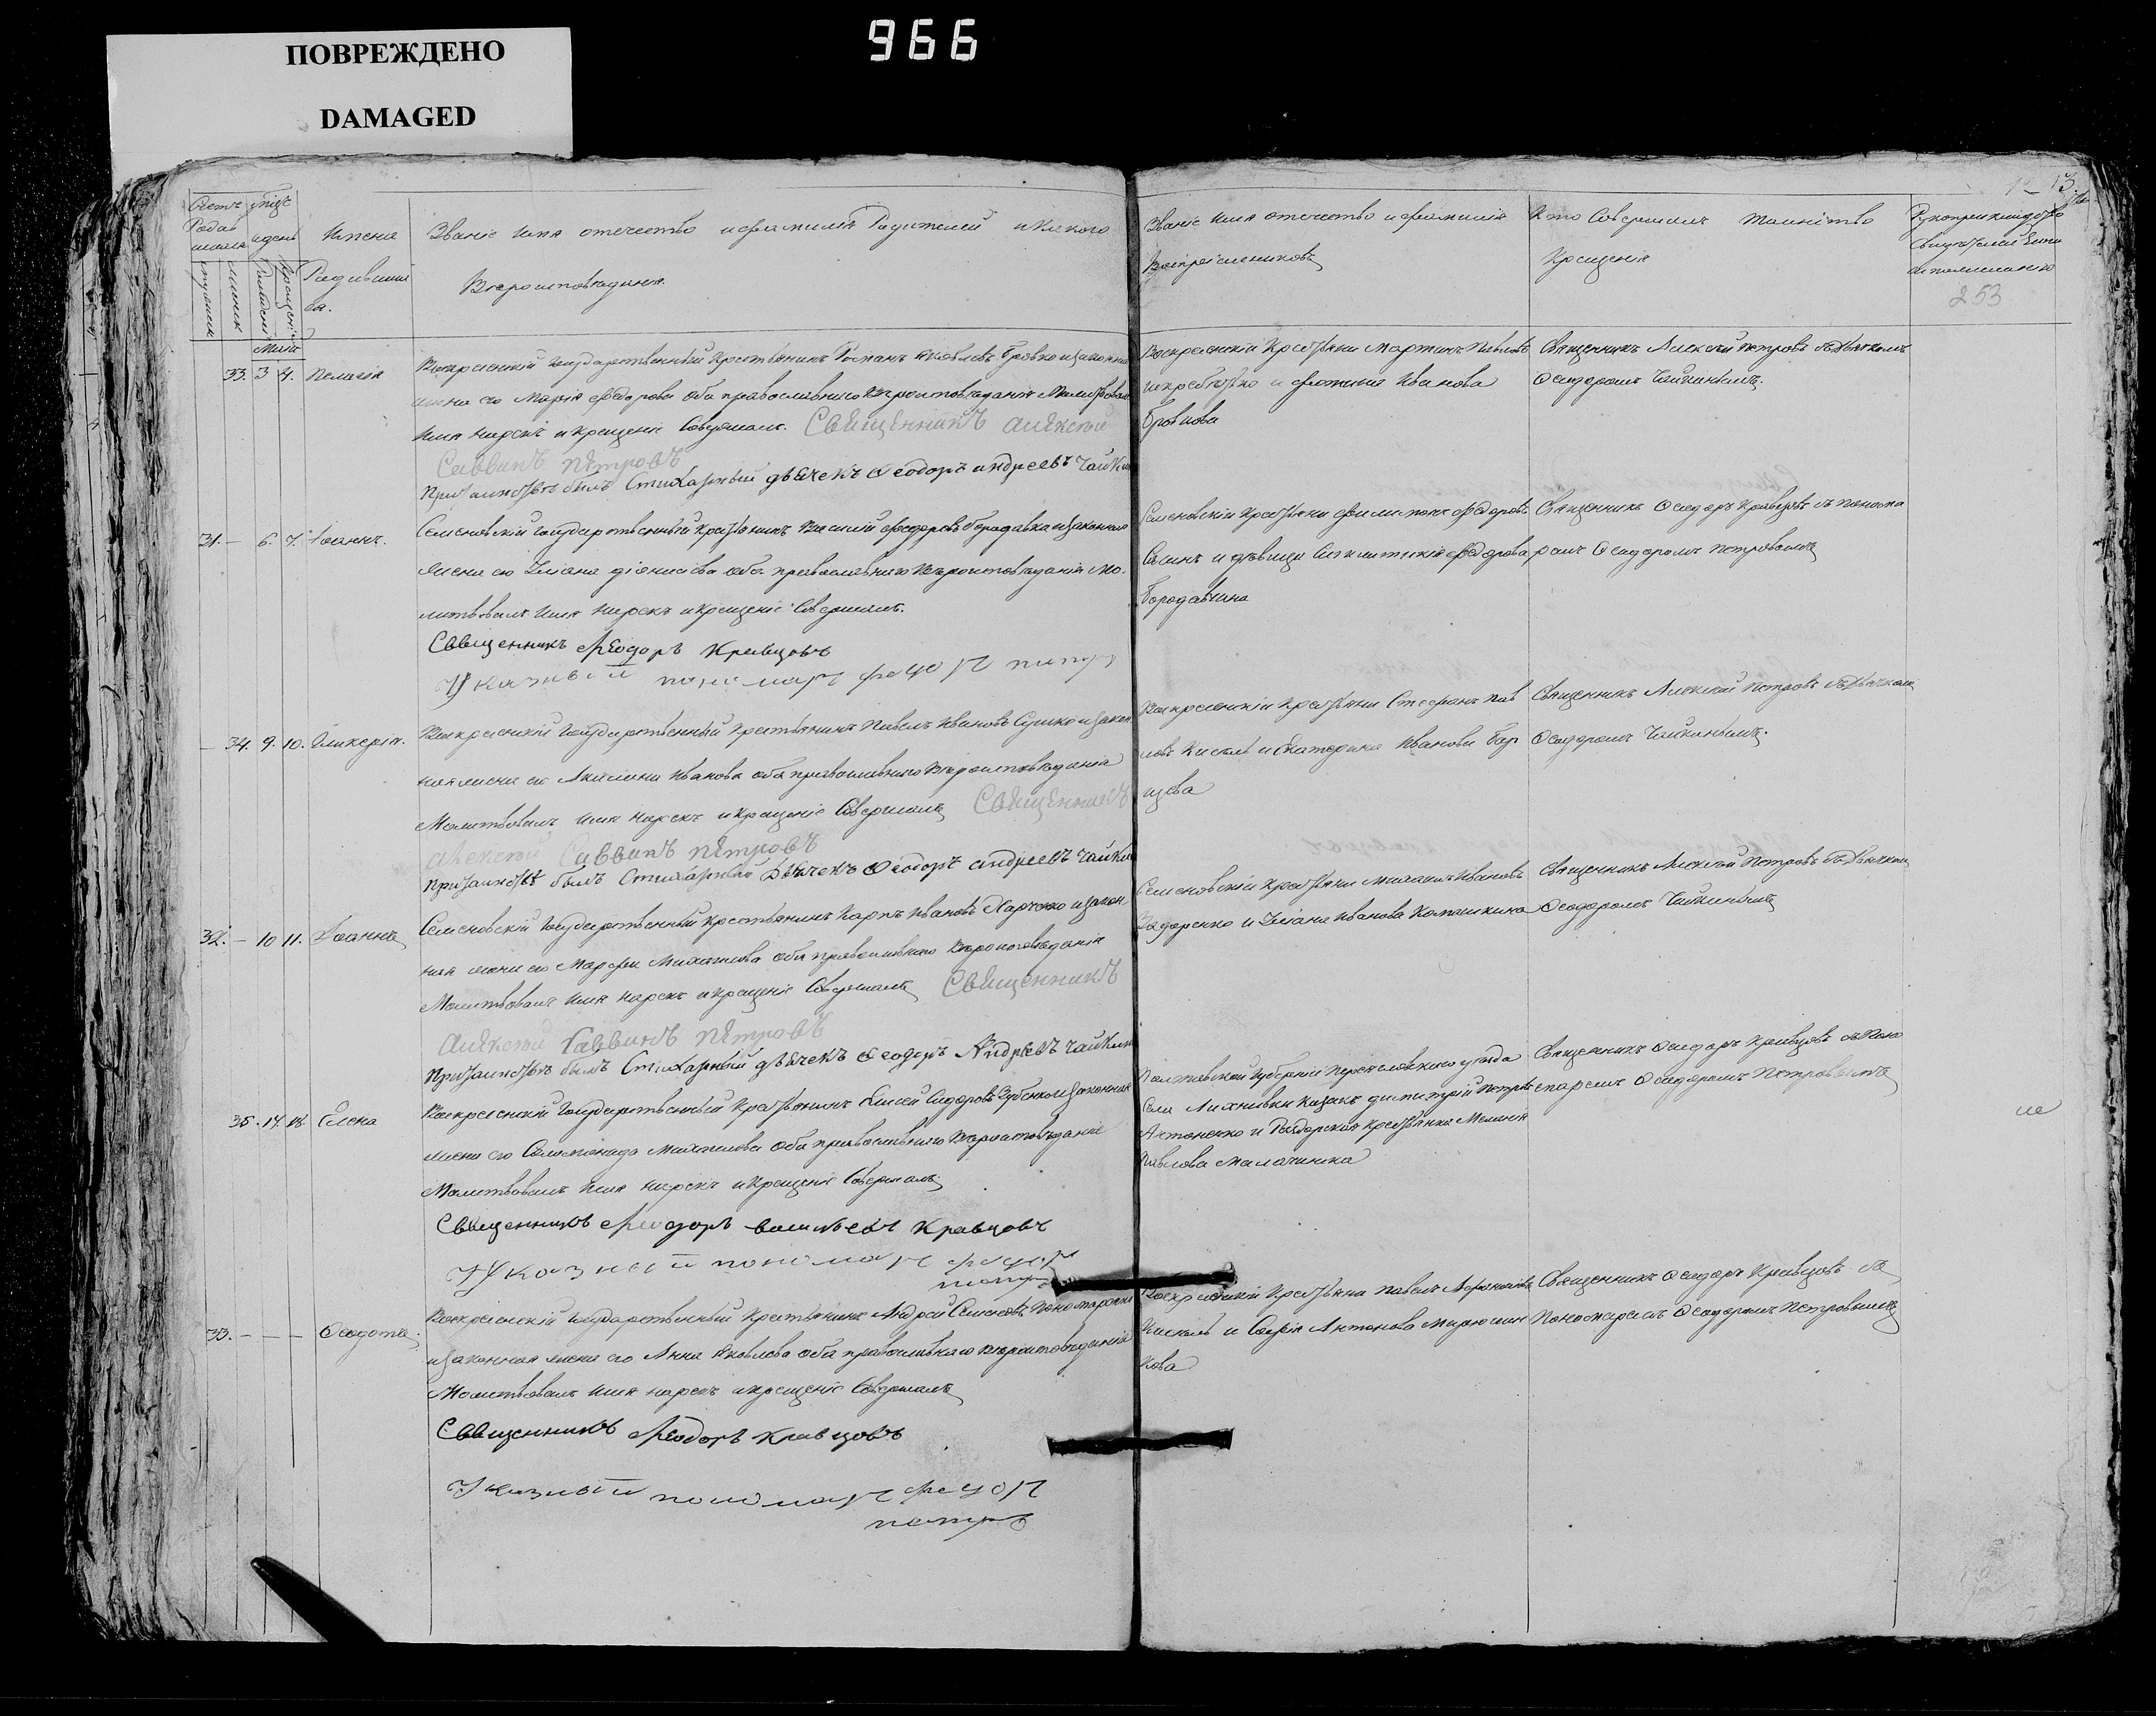 ПОВРЕЖДЕНО
DAMAGED
966
13.
Счетъ
Родив
шихся
мѣсяцъ
и день
Имена
Родивших
ся.
Званіе Имя отечество и фамилія Родителей и Какого
Вероисповеданія
Званіе имя отечество и фамилія
Воспріемниковъ
Кто Совершилъ Таинство
Крещенія
Рукоприкладство
Свидѣтелей Записи
по желанію
253
Маія
33. 3 4. Пелагія
Воскресенскій государственный Крестьянинъ Романъ Яковлевъ Бровко и законная
жена его Марія Федорова оба православнаго Вероисповеданія Молитвовалъ
Имя нарекъ и крещеніе Совершалъ. Священникъ Алексѣй
Саввинъ Петровъ
При таинствѣ былъ Стихарный дьячекъ Ѳеодоръ Андреевъ Чайкин
Воскресенскіи Крестьяни Мартинъ Павловъ
и Иванова
Бровкова
Священникъ Алексѣй Петровъ съ Дьячкомъ
Ѳеодоромъ Чайкинымъ.
31. — 6. 7. Іоаннъ.
Семеновскій государственный Крестьянинъ Василій Федоровъ Бородавка и законная
жена его Уліана Діонисіева оба православнаго Вероисповеданія Мо-
литвовалъ Имя нарекъ и крещеніе Совершалъ.
Священникъ Ѳеодоръ Кравцовъ
Указный пономарь Федоръ Петр
Семеновскіи Крестьяни Филимонъ Федоровъ
и дѣвица Федорова
Бородавкина
Священникъ Ѳеодоръ Кравцовъ съ Понома
ремъ Ѳеодоромъ Петровымъ
— 34. 9. 10. Гликерія.
Воскресенскій государственный Крестьянинъ Павелъ Ивановъ Сушко и закон
ная жена его Акилина Иванова оба православнаго Вероисповеданія
Молитвовалъ имя нарекъ и крещеніе Совершалъ Священникъ
Алексѣй Саввинъ Петровъ
При таинствѣ былъ Стихарный Дьячекъ Ѳеодоръ Андреевъ Чайкин
Воскресенскіи Крестьяни Стефанъ Пав
ловъ Кисель и Екатерина Иванова Бор
щева
Священникъ Алексѣй Петровъ съ Дьячкомъ
Ѳеодоромъ Чайкинымъ.
32. — 10 11. Іоаннъ
Семеновскій государственный крестьянинъ Карпъ Ивановъ Харченко и закон
ная жена его Марфа Михаилова оба православнаго Вероисповеданія
Молитвовалъ имя нарекъ и крещеніе Совершалъ Священникъ
Алексѣй Саввинъ Петровъ
При таинствѣ былъ Стихарный дьячекъ Ѳеодоръ Андреевъ Чайкин
Семеновскіи Крестьяни Михаилъ Ивановъ
и Уліана Иванова Комашкина
Священникъ Алексѣй Петровъ съ Дьячкомъ
Ѳеодоромъ Чайкинымъ
35. 17. 18. Елена
Воскресенскій государственный Крестьянинъ Елисей Сидоровъ Зубенко и законная
жена его Соломонида Михаилова оба православнаго Вероисповеданія
Молитвовалъ Имя нарекъ и крещеніе Совершалъ
Священникъ Ѳеодоръ Васильевъ Кравцовъ
Указный пономарь Федоръ
Петр
Полтавской Губерніи Переяславскаго уѣзда
Села Козакъ Димитрій Петровъ
Антоненко и крестьянка Меланія
Павлова
Священникъ Ѳеодоръ Кравцовъ съ Поно
маремъ Ѳеодоромъ Петровымъ
33. — — — Ѳеодотъ.
Воскресенскій государственный Крестьянинъ Андрей Семеновъ Пономаренко
и законная жена его Анна Яковлева оба православнаго вероисповеданія
Молитвовалъ имя нарекъ и крещеніе Совершалъ
Священникъ Ѳеодоръ Кравцовъ
Указный пономарь Федоръ
Петръ
Воскресенскіи Крестьяни Павелъ
Кисель и Софія Антонова
кова
Священникъ Ѳеодоръ Кравцовъ съ
Пономаремъ Ѳеодоромъ Петровымъ